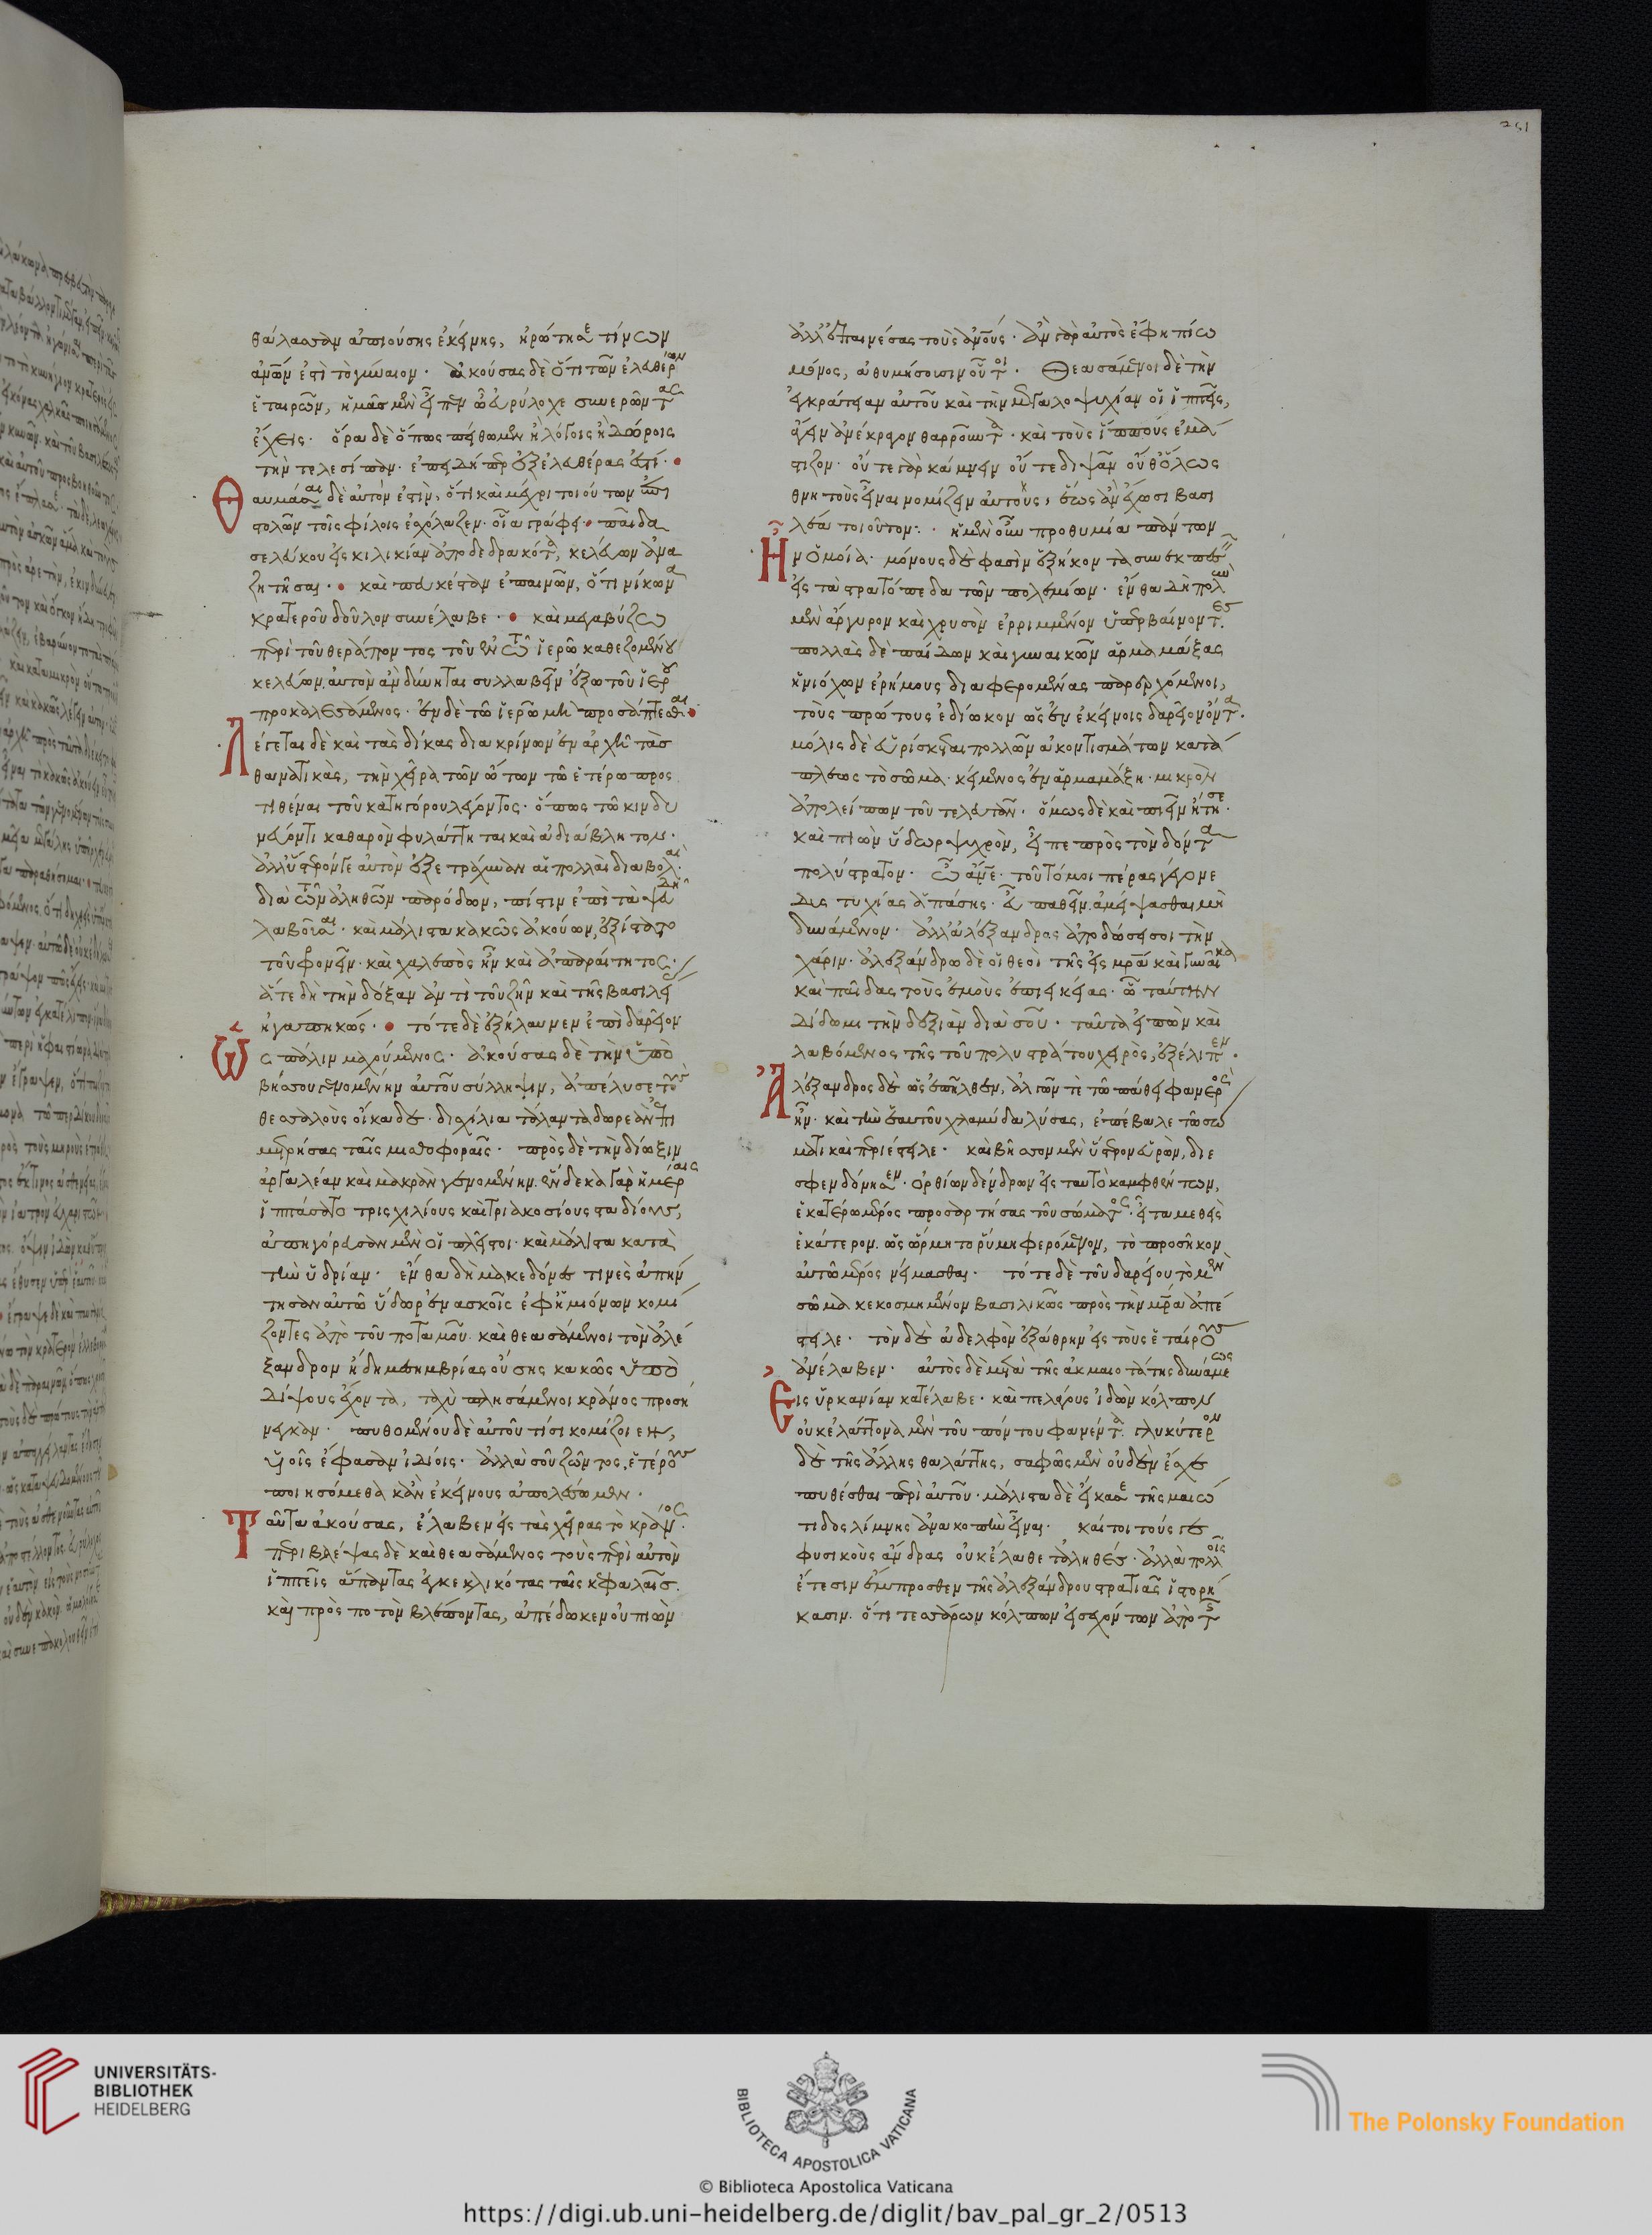 θάλασσαν ἀπιούσης ἐκείνης, ἠρώτησε τίνων
ἀνῶν ἐστὶ τὸ γύναιον· ἀκούσας δὲ ὅτι τῶν ἐλευθέρων
ἑταιρῶν, ἡμᾶς μὲν εἶπεν ὦ εὐρύλοχε συνερῶντας
ἔχεις· ὅρα δὲ ὅπως πείθωμεν ἢ λόγοις ἢ δώροις
τὴν τελεσίππαν· ἐπειδήπερ ἐξ ἐλευθέρας ἐστί·
Θαυμάσαι δὲ αὐτὸν ἐστὶν, ὅτι καὶ μέχρι τοιούτων ἐπι
στολῶν τοῖς φίλοις ἐσχόλαζεν· οἷα γράφει παῖδα
σελεύκου εἰς κιλικίαν ἀποδεδρακότα, κελεύων ἀνα
ζητῆσαι· καὶ πευκέσταν ἐπαινῶν, ὅτι νίκωνα
κρατεροῦ δοῦλον συνέλαβε· καὶ μεγαβύζω
περὶ τοῦ θεράποντος τοῦ ἐν τῶ ἱερῶ καθεζομένου
κελεύων, αὐτὸν ἂν δύνηται συλλαβεῖν ἔξω τοῦ ἱεροῦ
προκαλεσάμενος· ἐν δὲ τῶ ἱερῶ μὴ προσάπτεσθαι·
Λέγεται δὲ καὶ τὰς δίκας διακρίνων ἐν ἀρχῆ τὰς
θανατικὰς, τὴν χεῖρα τῶν ὤτων τῶ ἑτέρω προς
τιθέναι τοῦ κατηγόρου λέγοντος· ὅπως τῶ κινδυ
νεύοντι καθαρὸν φυλάττηται καὶ ἀδιάβλητον·
ἀλλ' ὕστερόν γε αὐτὸν ἐξετράχυναν αἱ πολλαὶ διαβολαὶ·
διὰ τῶν ἀληθῶν πάροδον, πίστιν ἐπὶ τὰ ψευδῆ
λαβοῦσαι· καὶ μάλιστα κακῶς ἀκούων, ἐξίστατο
τοῦ φρονεῖν· καὶ χαλεπὸς ἦν καὶ ἀπαραίτητος·
ἅτε δὴ τὴν δόξαν ἀντὶ τοῦ ζῆν καὶ τῆς βασιλεί
ἠγαπηκώς· τότε δὲ ἐξήλαυνεν ἐπὶ δαρεῖον
Ὡς πάλιν μαχούμενος· ἀκούσας δὲ τὴν ὑπὸ
βήσσου γενομένην αὐτοῦ σύλληψιν, ἀπέλυσε τοὺς
θεσσαλοὺς οἴκαδε· δισχίλια τάλαντα δωρεὰν ἐπι
μετρήσας ταῖς μισθοφοραῖς· πρὸς δὲ τὴν δίωξιν
ἀργαλέαν καὶ μακρὰν γενομένην, ἕνδεκα γὰρ ἡμέραις
ἱππάσατο τρισχιλίους καὶ τριακοσίους σταδίους,
ἀπηγόρευσαν μὲν οἱ πλεῖστοι· καὶ μάλιστα κατὰ
τὴν ὑδρίαν· ἔνθα δὴ μακεδόνες τινὲς ἀπήν
τησαν αὐτῶ ὕδωρ ἐν ἀσκοῖς ἐφ' ἡμιόνων κομί
ζοντες ἀπὸ τοῦ ποταμοῦ· καὶ θεασάμενοι τὸν ἀλέ
ξανδρον ἤδη μεσημβρίας οὔσης κακῶς ὑπὸ
δίψους ἔχοντα, ταχὺ πλησάμενοι κράνος προσή
νεγκαν· πυθομένου δὲ αὐτοῦ τίσι κομίζοιεν,
υἱοῖς ἔφασαν ἰδίοις· ἀλλὰ σοῦ ζῶντος, ἑτέρους
ποιησόμεθα κἂν ἐκείνους ἀπολέσωμεν·
Ταῦτα ἀκούσας, ἔλαβεν εἰς τὰς χεῖρας τὸ κράνος·
περιβλέψας δὲ καὶ θεασάμενος τοὺς περὶ αὐτὸν
ἱππεῖς ἅπαντας ἐγκεκλικότας ταῖς κεφαλαῖς·
καὶ πρὸς ποτὸν βλέποντας, ἀπέδωκεν οὐ πιὼν
ἀλλ' ἐπαινέσας τοὺς ἀνους· ἂν γὰρ αὐτὸς ἔφη πίω
μόνος, ἀθυμήσουσιν οὗτοι· Θεασάμενοι δὲ τὴν
ἐγκράτειαν αὐτοῦ καὶ τὴν μεγαλοψυχίαν οἱ ἱππεῖς,
ἄγειν ἀνέκραγον θαρροῦντα· καὶ τοὺς ἵππους ἐμά
στιζον· οὔτε γὰρ κάμνειν οὔτε διψᾶν οὔθ' ὅλως
θνητοὺς εἶναι νομίζειν αὐτοὺς, ἕως ἂν ἔχωσι βασι
λέα τοιοῦτον· ἡ μὲν οὖν προθυμία πάντων
Ἦν ὁμοία· μόνους δέ φασιν ἑξήκοντα συνεισπεσεῖν
εἰς τὰ στρατόπεδα τῶν πολεμίων· ἔνθα δὴ πολὺν
μὲν ἄργυρον καὶ χρυσὸν ἐρριμμένον ὑπερβαίνοντες·
πολλὰς δὲ παίδων καὶ γυναικῶν ἁρμαμάξας
ἡνιόχων ἐρήμους διαφερομένας παρερχόμενοι,
τοὺς πρώτους ἐδίωκον ὡς ἐν ἐκείνοις δαρεῖον ὄντα·
μόλις δὲ εὑρίσκεται πολλῶν ἀκοντισμάτων κατά
πλεως τὸ σῶμα· κείμενος ἐν ἁρμαμάξη· μικρὸν
ἀπολείπων τοῦ τελευτᾶν· ὅμως δὲ καὶ πιεῖν ἤτησε·
καὶ πιὼν ὕδωρ ψυχρὸν, εἶπε πρὸς τὸν δόντα
πολύστρατον· ὦ ἄνε· τοῦτό μοι πέρας γέγονε
δυστυχίας ἁπάσης· εὖ παθεῖν, ἀμείψασθαι μὴ
δυνάμενον· ἀλλ' ἀλέξανδρος ἀποδώσει σοι τὴν
χάριν· ἀλεξάνδρω δὲ οἱ θεοὶ τῆς εἰς μρα καὶ γυναῖκα
καὶ παῖδας τοὺς ἐμοὺς ἐπιεικείας· ὧ ταύτην
δίδωμι τὴν δεξιὰν διὰ σοῦ· ταῦτα εἰπὼν καὶ
λαβόμενος τῆς τοῦ πολυστράτου χειρὸς, ἐξέλιπεν·
Ἀλέξανδρος δὲ ὡς ἐπῆλθεν, ἀλγῶν τε τῶ πάθει φανερὸς
ἦν· καὶ τὴν ἑαυτοῦ χλαμύδα λύσας, ἐπέβαλε τῶ σώ
ματι καὶ περιέστειλε· καὶ βῆσσον μὲν ὕστερον εὑρὼν, διε
σφενδόνησεν· ὀρθίων δένδρων εἰς ταυτὸ καμφθέντων,
ἑκατέρω μέρος προσαρτήσας τοῦ σώματος· εἶτα μεθεὶς
ἑκάτερον, ὡς ὥρμητο ῥύμη φερόμενον, τὸ προσῆκον
αὐτῶ μέρος νείμασθαι· τότε δὲ τοῦ δαρείου τὸ μὲν
σῶμα κεκοσμημένον βασιλικῶς πρὸς τὴν μρα ἀπέ
στειλε· τὸν δὲ ἀδελφὸν ἐξάθρην εἰς τοὺς ἑταίρους
ἀνέλαβεν· αὐτὸς δὲ μετὰ τῆς ἀκμαιοτάτης δυνάμεως
Εἰς ὑρκανίαν κατέβαινε· καὶ πελάγους ἰδὼν κόλπον
οὐκ ἐλάττονα μὲν τοῦ πόντου φανέντα· γλυκύτερον
δὲ τῆς ἄλλης θαλάττης, σαφὲς μὲν οὐδὲν ἔσχε
πυθέσθαι περὶ αὐτοῦ· μάλιστα δὲ εἴκασε τῆς μαιώ
τιδος λίμνης ἀνακοπὴν εἶναι· καίτοι τούς γε
φυσικοὺς ἄνδρας οὐκ ἔλαθε τἀληθές· ἀλλὰ πολλοῖς
ἔτεσιν ἔμπροσθεν τῆς ἀλεξάνδρου στρατείας ἱστορή
κασιν· ὅτι τεσσάρων κόλπων εἰσεχόντων ἀπὸ τῆς
251
UNIVERSITÄTS-
BIBLIOTHEK
HEIDELBERG
BIBLIOTECA APOSTOLICA VATICANA
The Polonsky Foundation
© Biblioteca Apostolica Vaticana
https://digi.ub.uni-heidelberg.de/diglit/bav_pal_gr_2/0513